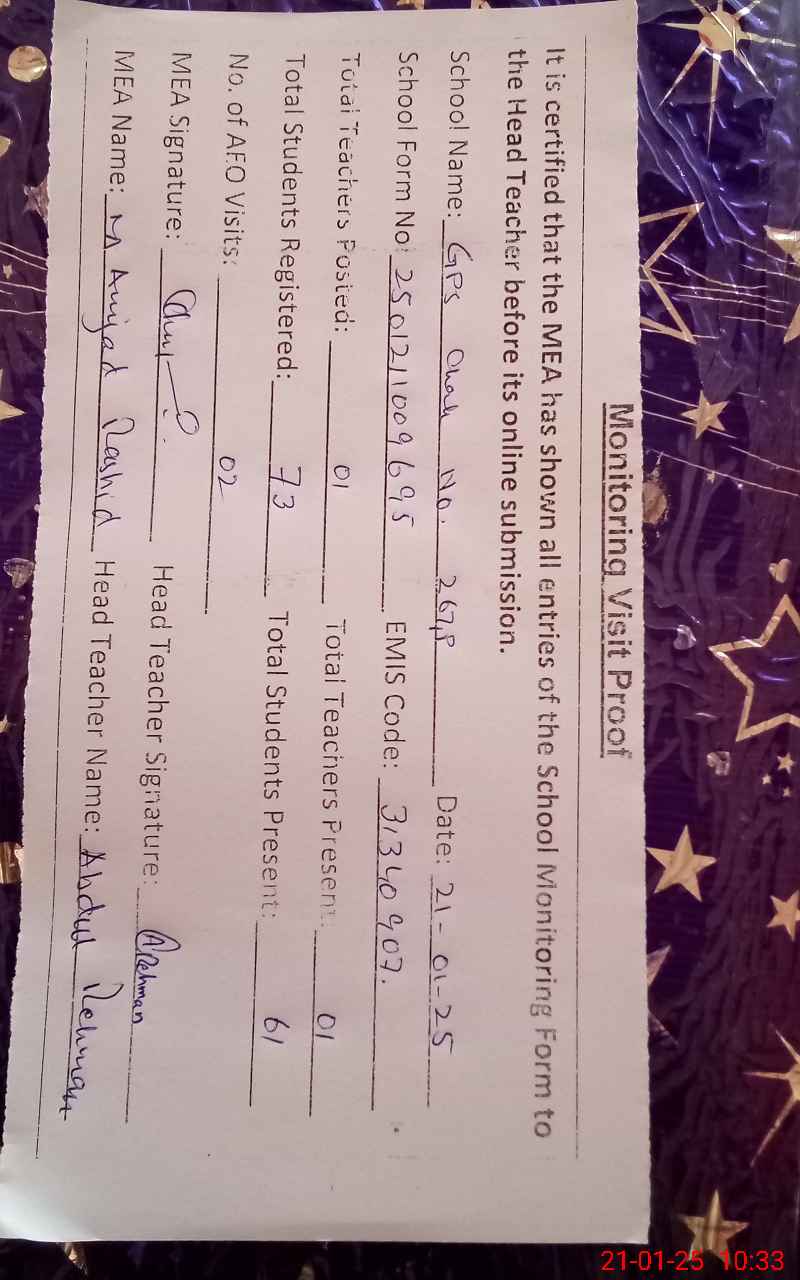 Monitoring Visit Proof
It is certified that the MEA has shown all entries of the School Monitoring Form to
the Head Teacher before its online submission.
School Name: GPS Chak No. 267,P Date: 21-01-25
School Form No: 2501211009695 EMIS Code: 31340907.
Total Teachers Posted: 01 Total Teachers Present: 01
Total Students Registered: 73 Total Students Present: 61
No. of AEO Visits: 02
MEA Signature: Head Teacher Signature: ARehman
MEA Name: M Amjad Rashid Head Teacher Name: Abdul Rehman
21-01-25 10:33